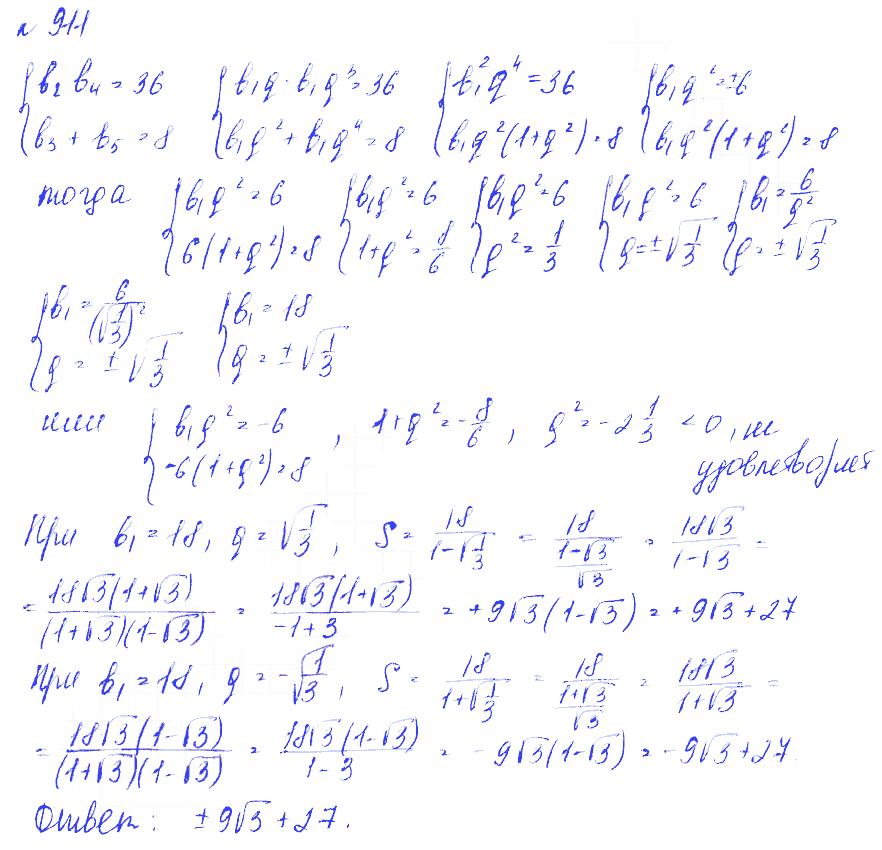 № 911
{b₂ b₄ = 36 {b₁q · b₁q³ = 36 {b₁²q⁴ = 36 {b₁q² = ±6
{b₃ + b₅ = 8 {b₁q² + b₁q⁴ = 8 {b₁q²(1+q²) = 8 {b₁q²(1+q²) = 8
тогда {b₁q² = 6 {b₁q² = 6 {b₁q² = 6 {b₁q² = 6 {b₁ = 6/q²
{6(1+q²) = 8 {1+q² = 8/6 {q² = 1/3 {q = ±√(1/3) {q = ±√(1/3)
{b₁ = 6/(√(1/3))² {b₁ = 18
{q = ±√(1/3) {q = ±√(1/3)
или {b₁q² = -6 , 1+q² = -8/6 , q² = -2 1/3 < 0, не
{-6(1+q²) = 8 удовлетворяет
При b₁ = 18, q = √(1/3), S = 18/(1-√(1/3)) = 18/((1-√3)/√3) = 18√3/(1-√3) =
= 18√3(1+√3)/((1+√3)(1-√3)) = 18√3(1+√3)/(-1+3) = +9√3(1-√3) = +9√3+27
При b₁ = 18, q = -√(1/3), S = 18/(1+√(1/3)) = 18/((1+√3)/√3) = 18√3/(1+√3) =
= 18√3(1-√3)/((1+√3)(1-√3)) = 18√3(1-√3)/(1-3) = -9√3(1-√3) = -9√3+27.
Ответ: ±9√3+27.